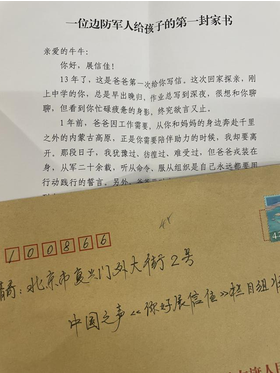 一位边防军人给孩子的第一封家书
亲爱的牛牛:
你好,展信佳!
13年了,这是爸爸第一次给你写信,这次回家探亲,刚
上中学的你,总是早出晚归,作业总写到深夜,很想和你聊
聊,但看到你忙碌疲惫的身影,终究欲言又止。
1年前,爸爸因工作需要,从你和妈妈的身边奔赴千里
之外的内蒙古高原,正是你需要陪伴助力的时候,我却要离
开,那段日子,我犹豫过、彷徨过、难受过,但爸爸戎装在
身,从军二十余载,听从命令、服从组织是自己永远都要用
行动践行的誓言。另外,
100866
北京市复兴门外大街2号
中国之声《你好展信佳》栏目组